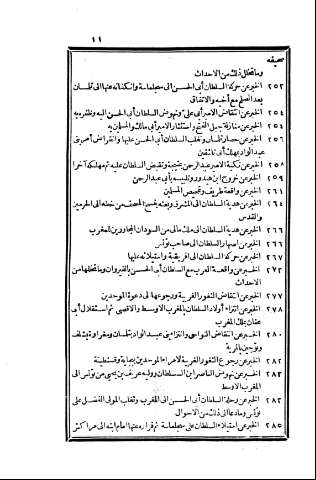 ١١
صحيفة
وما تخلل ذلك من الاحداث
٢٥٢ الخبر عن حركة السلطان أبى الحسن الى سجلماسة وانكفائه عنها الى تلمسان
بعد الصلح مع أخيه والاتفاق
٢٥٤ الخبر عن انتقاض الامير أبى على ونهوض السلطان أبى الحسن اليه وظفره به
٢٥٤ الخبر عن منازلة جبل الفتح واستئثار الامير أبى مالك والمسلمين به
٢٥٦ الخبر عن حصار تلمسان وتغلب السلطان أبى الحسن عليها وانقراض أمر بنى
عبد الواد بمهلك أبى تاشفين
٢٥٨ الخبر عن نكبة الامير عبد الرحمن بمتيجة وتقبض السلطان عليه ثم مهلكه آخرا
٢٥٩ الخبر عن خروج ابن هيدور وتلبيسه بأبى عبد الرحمن
٢٦١ الخبر عن واقعة طريف وتمحيص المسلمين
٢٦٤ الخبر عن هدية السلطان الى المشرق وبعثه بنسخ المصحف من خطه الى الحرمين
والقدس
٢٦٦ الخبر عن هدية السلطان الى ملك مالى من السودان المجاورين للمغرب
٢٦٦ الخبر عن اصهار السلطان الى صاحب تونس
٢٦٧ الخبر عن حركة السلطان الى افريقية واستيلائه عليها
٢٧٢ الخبر عن واقعة العرب مع السلطان أبى الحسن بالقيروان وما تخللها من
الاحداث
٢٧٧ الخبر عن انتقاض الثغور الغربية ورجوعها الى دعوة الموحدين
٢٧٨ الخبر عن انتزاء أولاد السلطان بالمغرب الاوسط والاقصى ثم استقلال أبى
عنان بملك المغرب
٢٨٠ الخبر عن انتقاض النواحى وانتزاء بنى عبد الواد بتلمسان ومغراوة بشلف
وتوجين بالمرية
٢٨٢ الخبر عن رجوع الثغور الغربية لامراء الموحدين ببجاية وقسنطينة
٢٨٣ الخبر عن نهوض الناصر ابن السلطان ووليه عريف بن يحيى من تونس الى
المغرب الاوسط
٢٨٣ الخبر عن رحلة السلطان أبى الحسن الى المغرب وتغلب المولى الفضل على
تونس وما دعا الى ذلك من الاحوال
٢٨٥ الخبر عن استيلاء السلطان على سجلماسة ثم فراره عنها امام ابنه الى مراكش